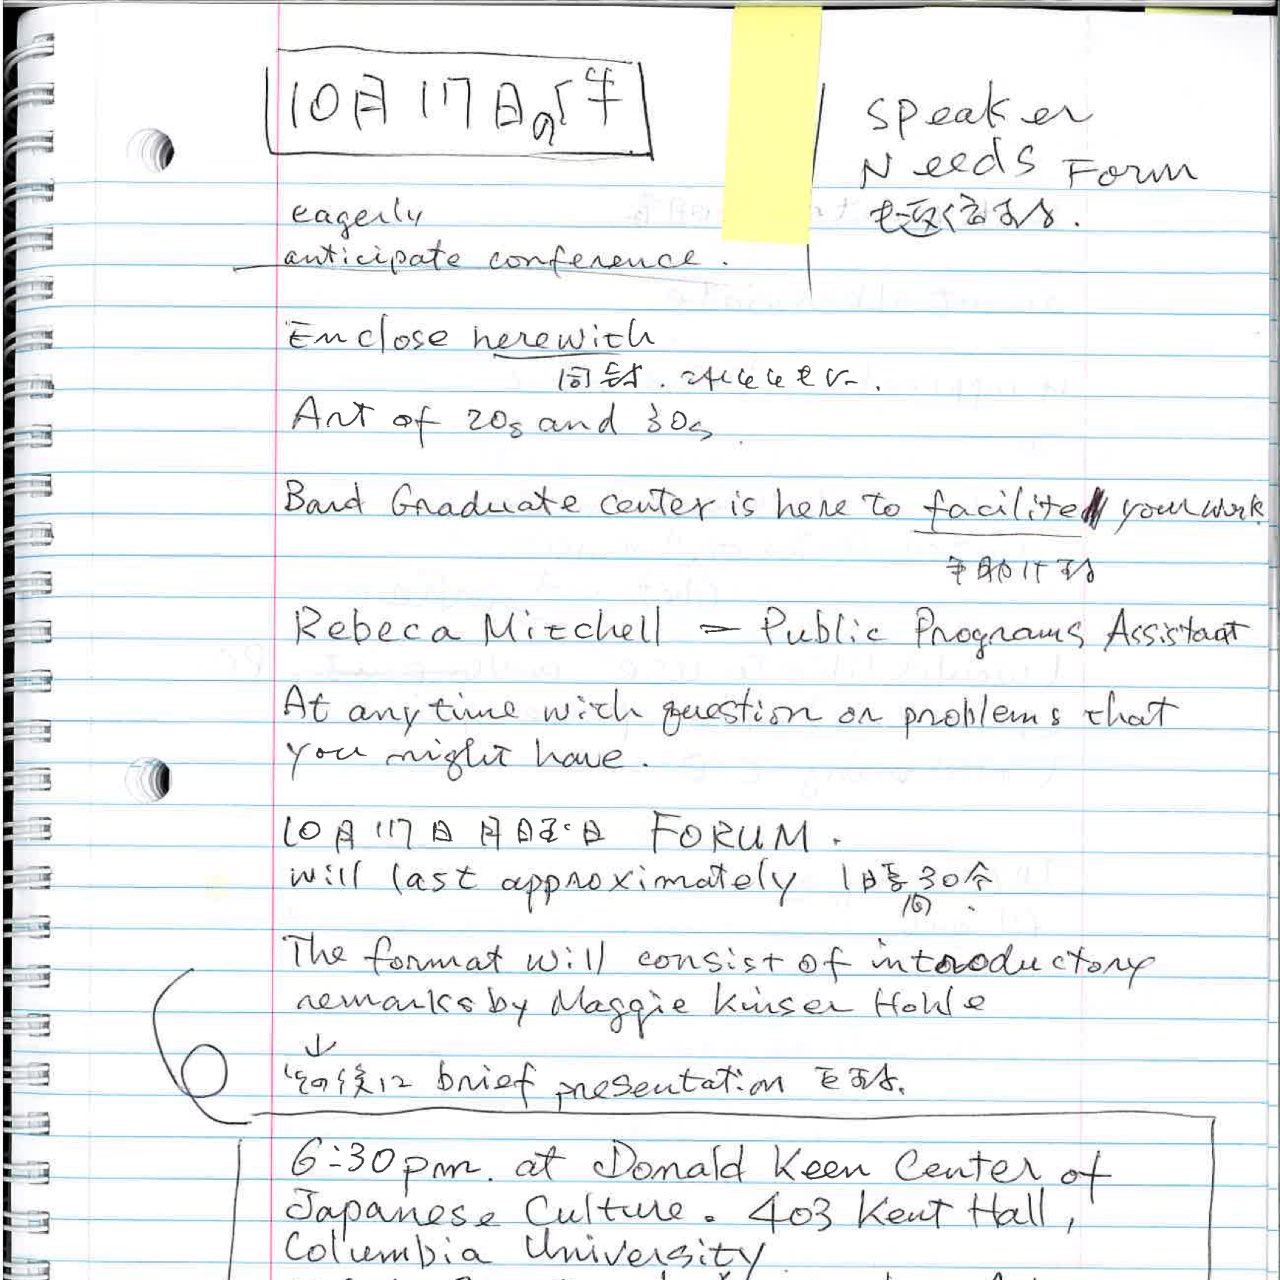 10月17日の件
Speaker
Needs Form
を返信する.
eagerly
anticipate conference.
Enclose herewith
同封.
Art of 20s and 30s
Bard Graduate center is here to facilite your work
手助けする
Rebeca Mitchell — Public Programs Assistant
At any time with question or problems that
you might have.
10月17日 月曜日 FORUM.
will last approximately 1時間30分
The format will consist of introductory
remarks by Maggie Kinser Hohle
↓
その後に brief presentation をする.
6:30pm. at Donald Keen Center of
Japanese Culture. 403 Kent Hall,
Columbia University